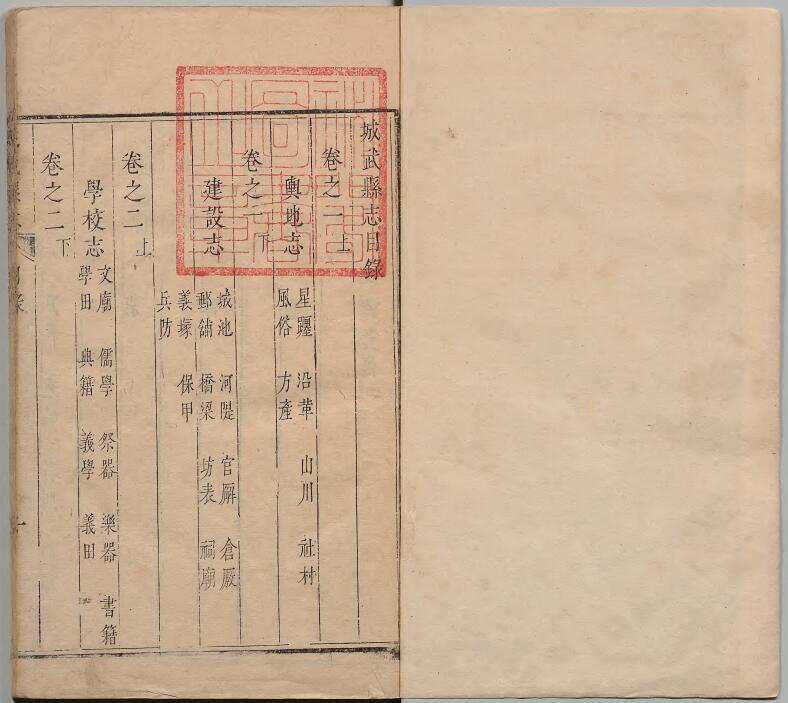 城武縣志目錄
卷之一上
輿地志
星躔 沿革 山川 社村
風俗 方產
卷之一下
建設志
城池 河隄 官廨 倉厫
郵舖 橋梁 坊表 祠廟
義塚 保甲
兵防
卷之二上
學校志
文廟 儒學 祭器 樂器 書籍
學田 典籍 義學 義田
卷之二下